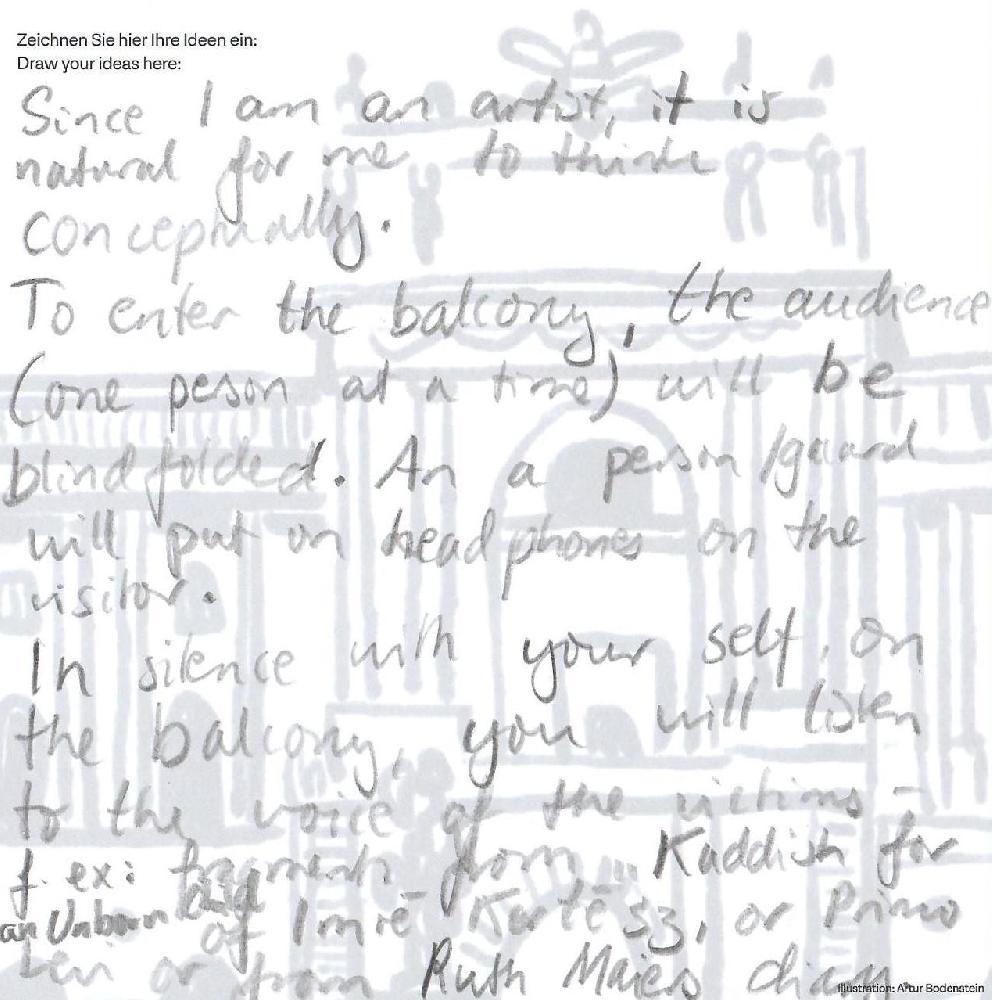 Zeichnen Sie hier Ihre Ideen ein:
Draw your ideas here:
Since I am an artist, it is
natural for me to think
conceptually.
To enter the balcony, the audience
(one person at a time) will be
blindfolded. An a person/guard
will put on headphones on the
visitor.
In silence with your self, on
the balcony, you will listen
to the voice of the victims -
f. ex: fragments from "Kaddish for
an Unborn Child
of Imre Kertész, or Primo
Levi or from Ruth Maiers diary.
Illustration: Artur Bodenstein